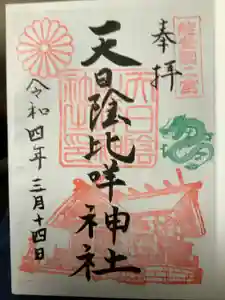 奉拝
天日陰比咩神社
令和四年三月十四日